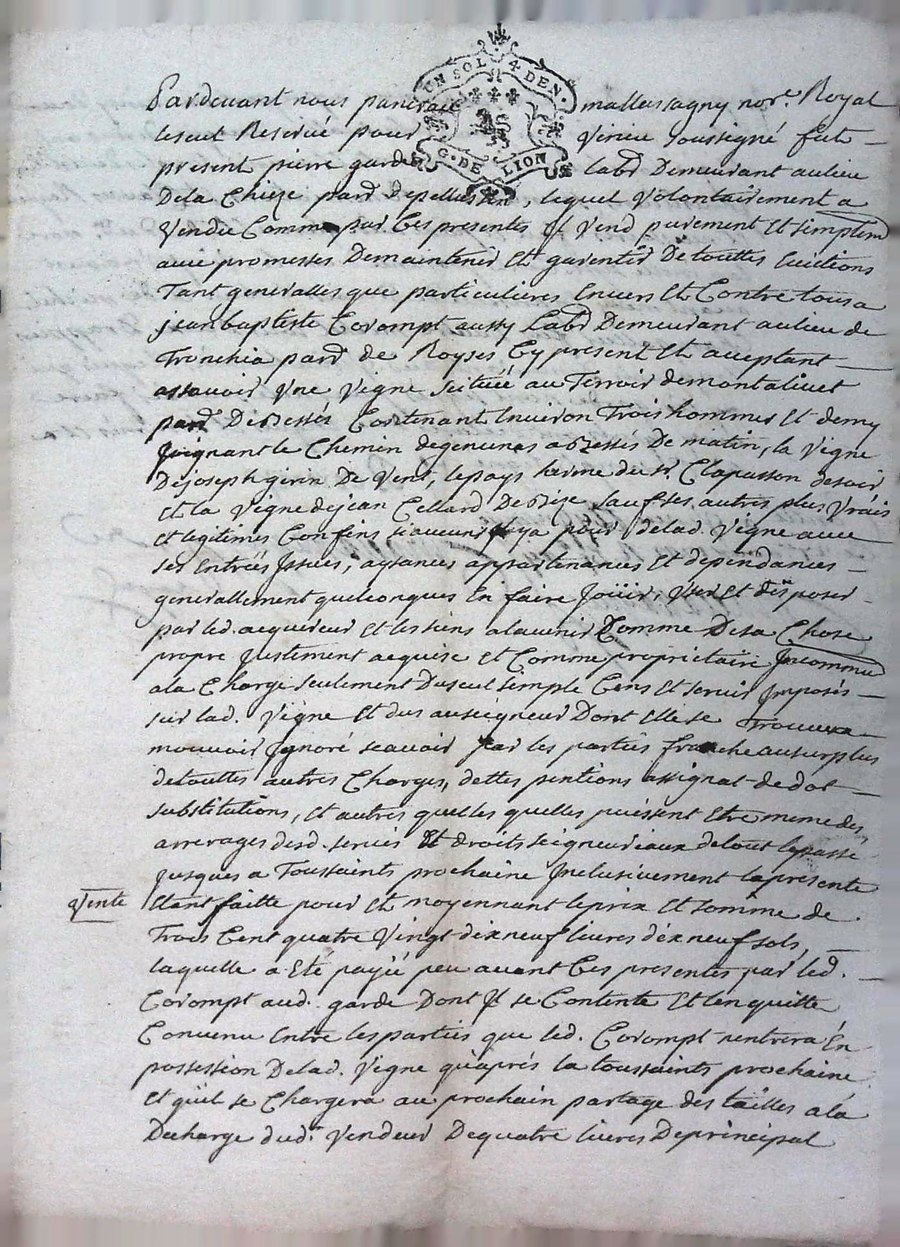 UN SOL 4 DEN.
G. DE LION
Pardevant nous pancrace mallassagny nore. Royal
lescut Reservé pour Virieu soussigné fut
present pierre garde labr Demeurant au lieu
De la Chieze parr depellussin, lequel volontairement a
vendu Comme par Ces presentes Il vend purement Et simplemt
avec promesses De maintenir Et garentir De touttes Evictions
Tant generalles que particulieres Envers Et Contre tous a
jean baptiste Corompt aussy Labr Demeurant au lieu de
Tronchia parr de Royses Cy present Et aceptant
assavoir Une vigne scituée au Terroir de montalivet
parr De Bessés Contenant Environ Trois hommes Et demy
Joignant le Chemin de a Bessés De matin, la vigne
De joseph girin De vent, le pays herme du sr. Clapasson de soir
Et la vigne de jean Cellard De Bize sauf ses autres plus vrais
Et legitimes Confins si aucuns y a pour delad. vigne avec
ses Entrées Issues, aysances appartenances Et dependances
generallement quelconques En faire Joüir, User Et disposer
par led. acquereur Et les siens a lavenir Comme De sa Chose
propre Justement acquise Et Comme proprietaire Incommu
a la Charge seulement Du seul simple Cens Et servis Imposés
sur lad. vigne Et dus au seigneur Dont Elle se Trouvera
mouvoir Ignoré scavoir par les parties franche au surplus
de touttes autres Charges, dettes pentions assignat de dot
substitutions, Et autres quelles quelles puissent Etre meme des
arrerages desd. servis Et droits seigneuriaux de tout le passé
jusques a Toussaints prochaine Inclusivement la presente
Vente
Etant faitte pour Et moyennant le prix Et somme de
Trois Cent quatre Vingt dix neuf livres dix neuf sols,
laquelle a Eté payée peu avant Ces presentes par led.
Corompt aud. garde Dont Il se Contente Et len quitte
Convenu Entre les parties que led. Corompt rentrera En
possession De lad. vigne qu'aprés la toussaints prochaine
Et qu'il se Chargera au prochain partage des tailles a la
Decharge dudt. vendeur De quatre livres De principal